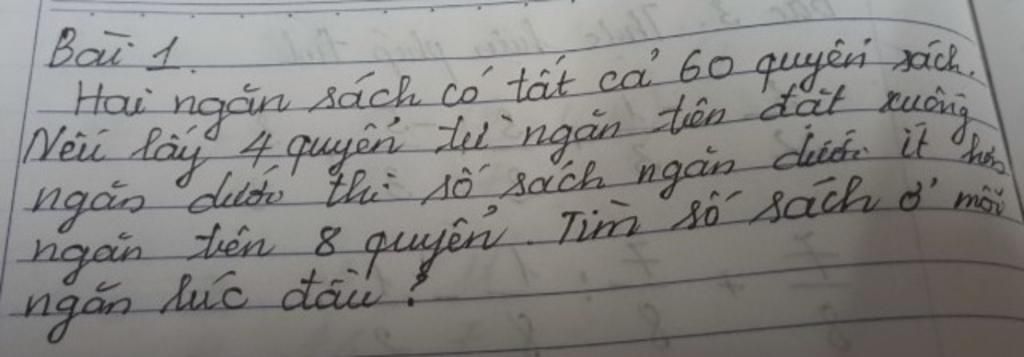 Bài 1.
Hai ngăn sách có tất cả 60 quyển sách.
Nếu lấy 4 quyển từ ngăn trên đặt xuống
ngăn dưới thì số sách ngăn dưới ít hơn
ngăn trên 8 quyển. Tìm số sách ở mỗi
ngăn lúc đầu?